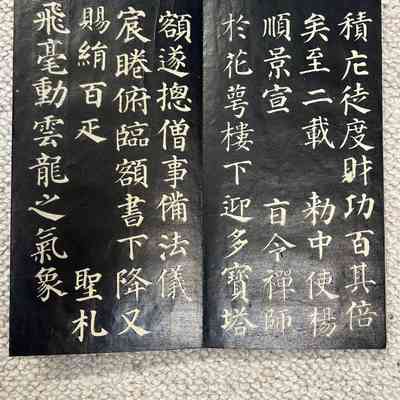 積庀徒度財功百其倍
矣至二載 勑中使楊
順景宣 旨令禪師
於花萼樓下迎多寶塔
額遂摠僧事備法儀
宸睠俯臨額書下降又
賜絹百疋 聖札
飛毫動雲龍之氣象